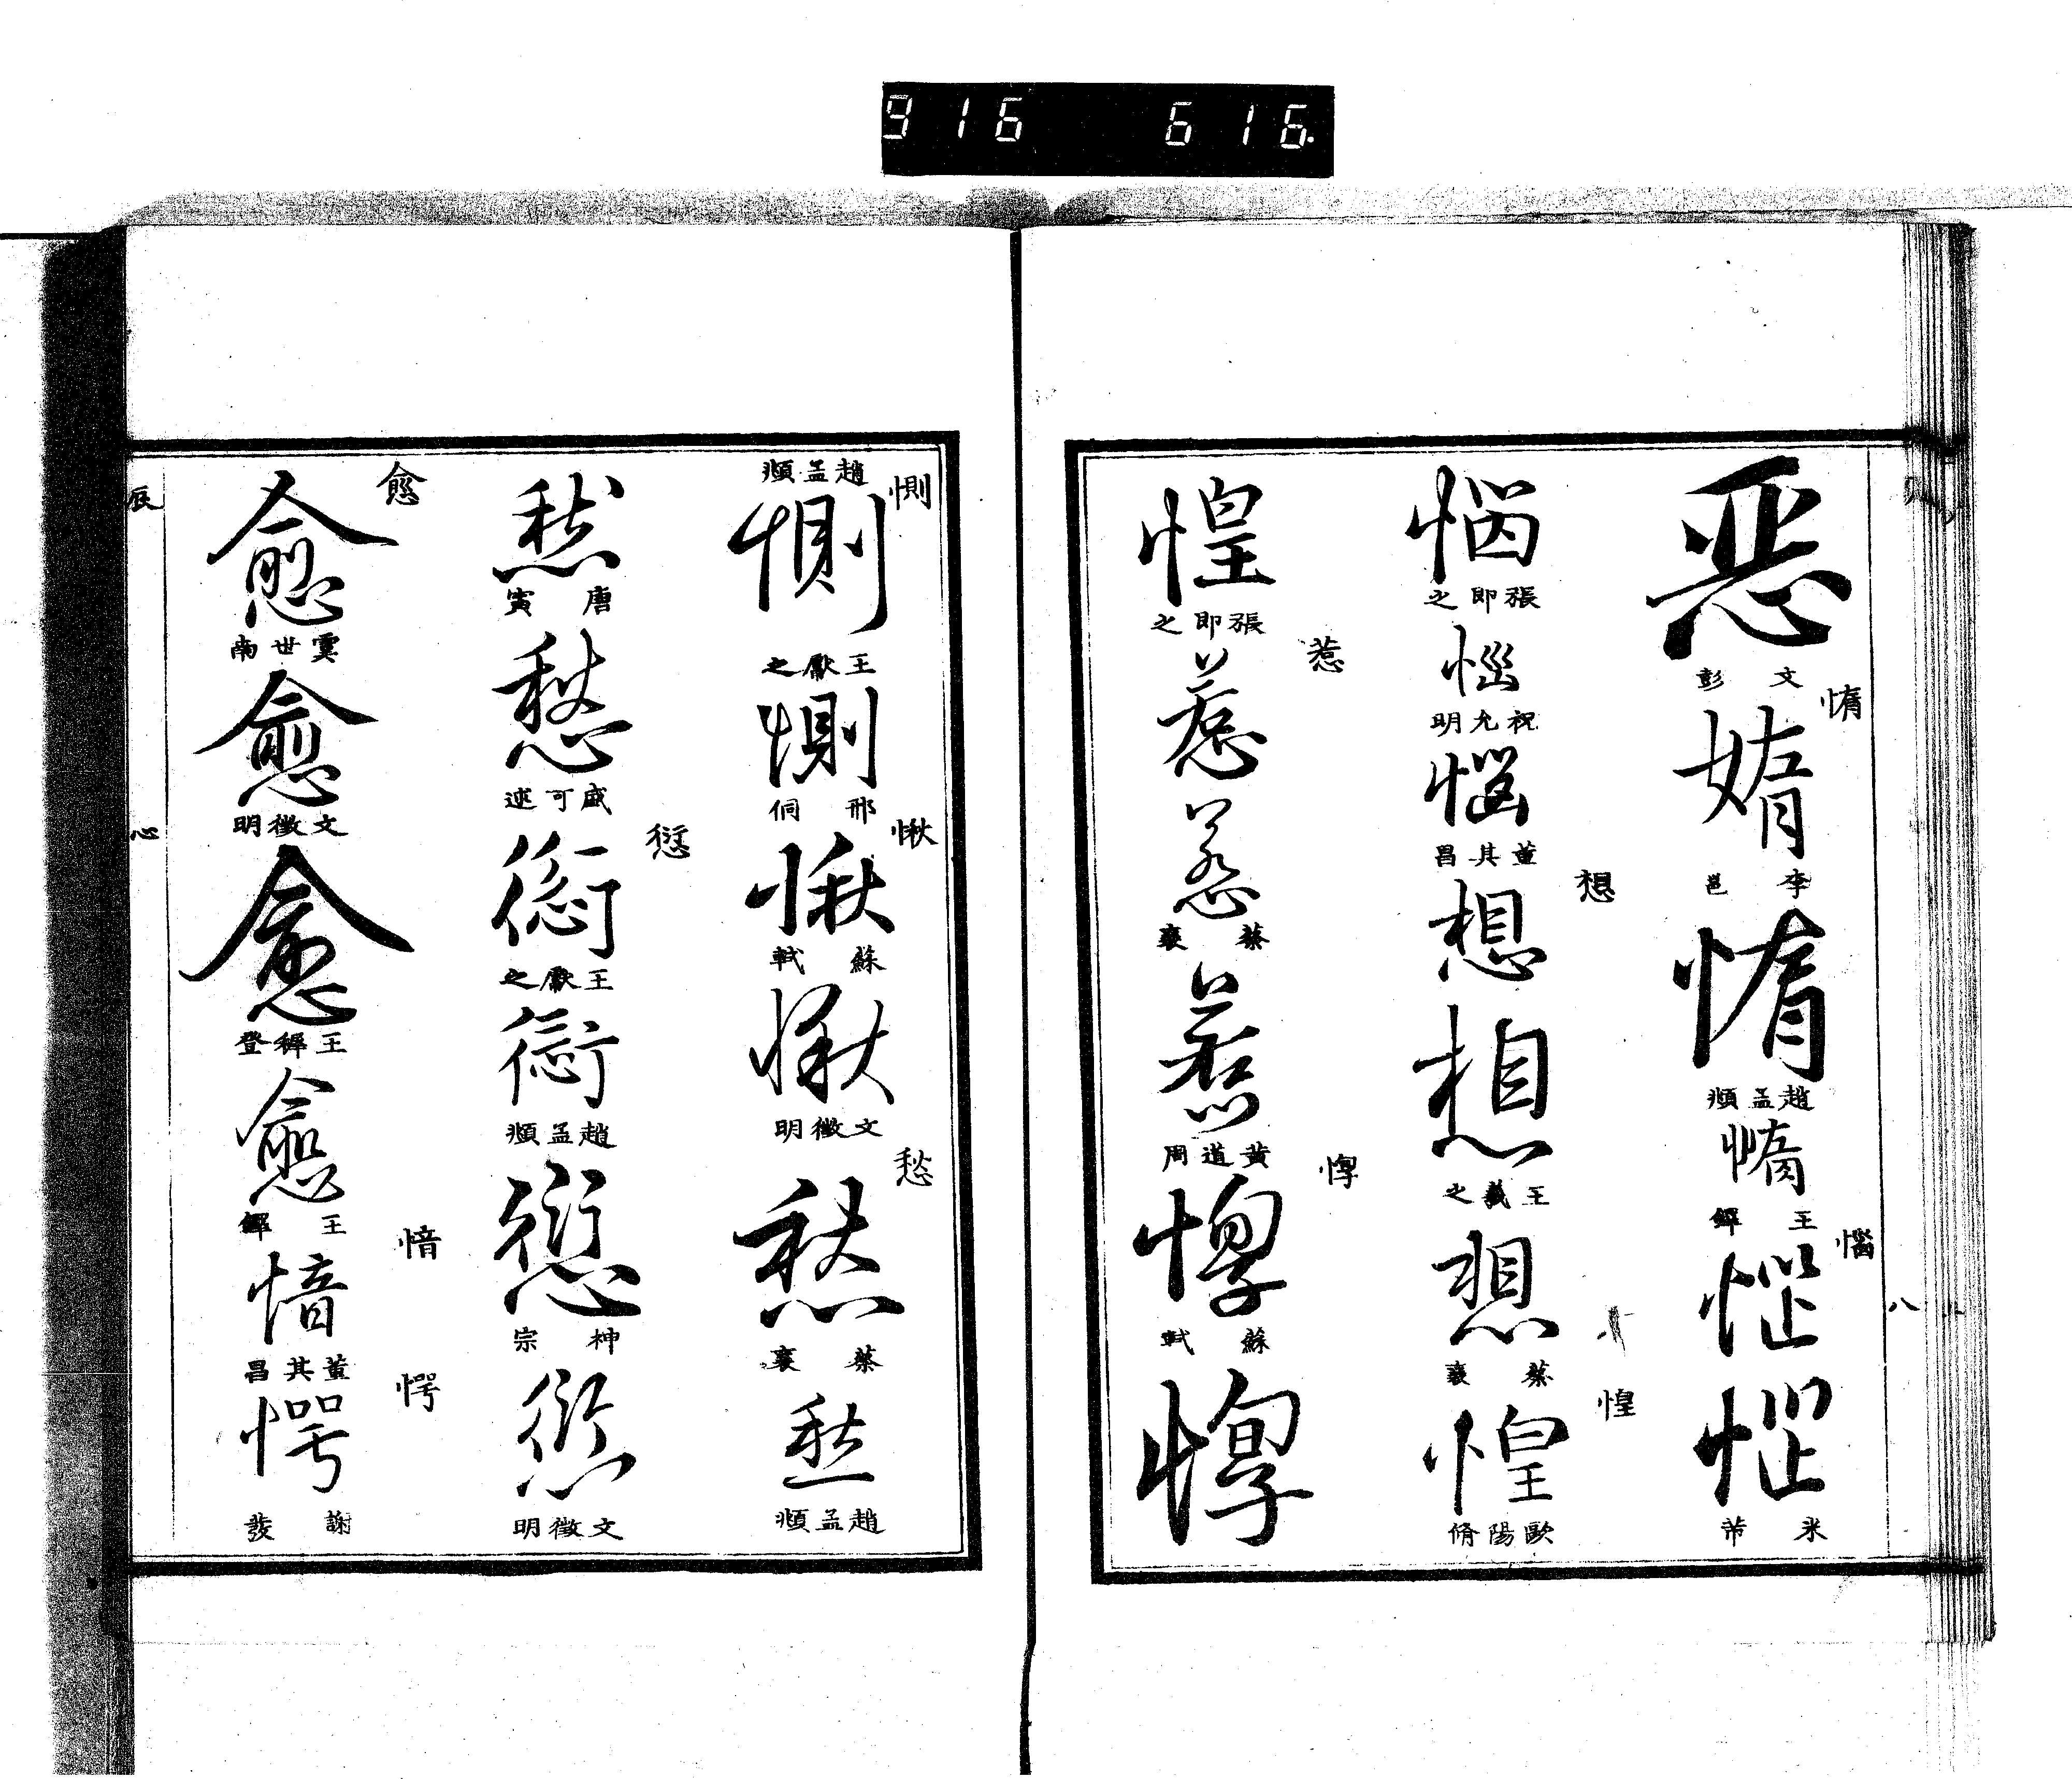 916 616.
八
惡
文彭
惰
媠
李邕
惰
趙孟頫
惰
王鐸
惱
惱
惱
米芾
惱
張即之
惱
祝允明
惱
董其昌
想
想
想
王羲之
想
蔡襄
惶
惶
歐陽脩
惶
張即之
惹
惹
惹
蔡襄
惹
黃道周
惸
惸
蘇軾
惸
趙孟頫
惻
惻
王獻之
惻
邢侗
愀
愀
蘇軾
愀
文徵明
愁
愁
蔡襄
愁
趙孟頫
愁
唐寅
愁
戚可述
愆
愆
王獻之
愆
趙孟頫
愆
神宗
愆
文徵明
愈
愈
虞世南
愈
文徵明
愈
王穉登
愈
王鐸
愔
愔
董其昌
愕
愕
謝發
辰
心